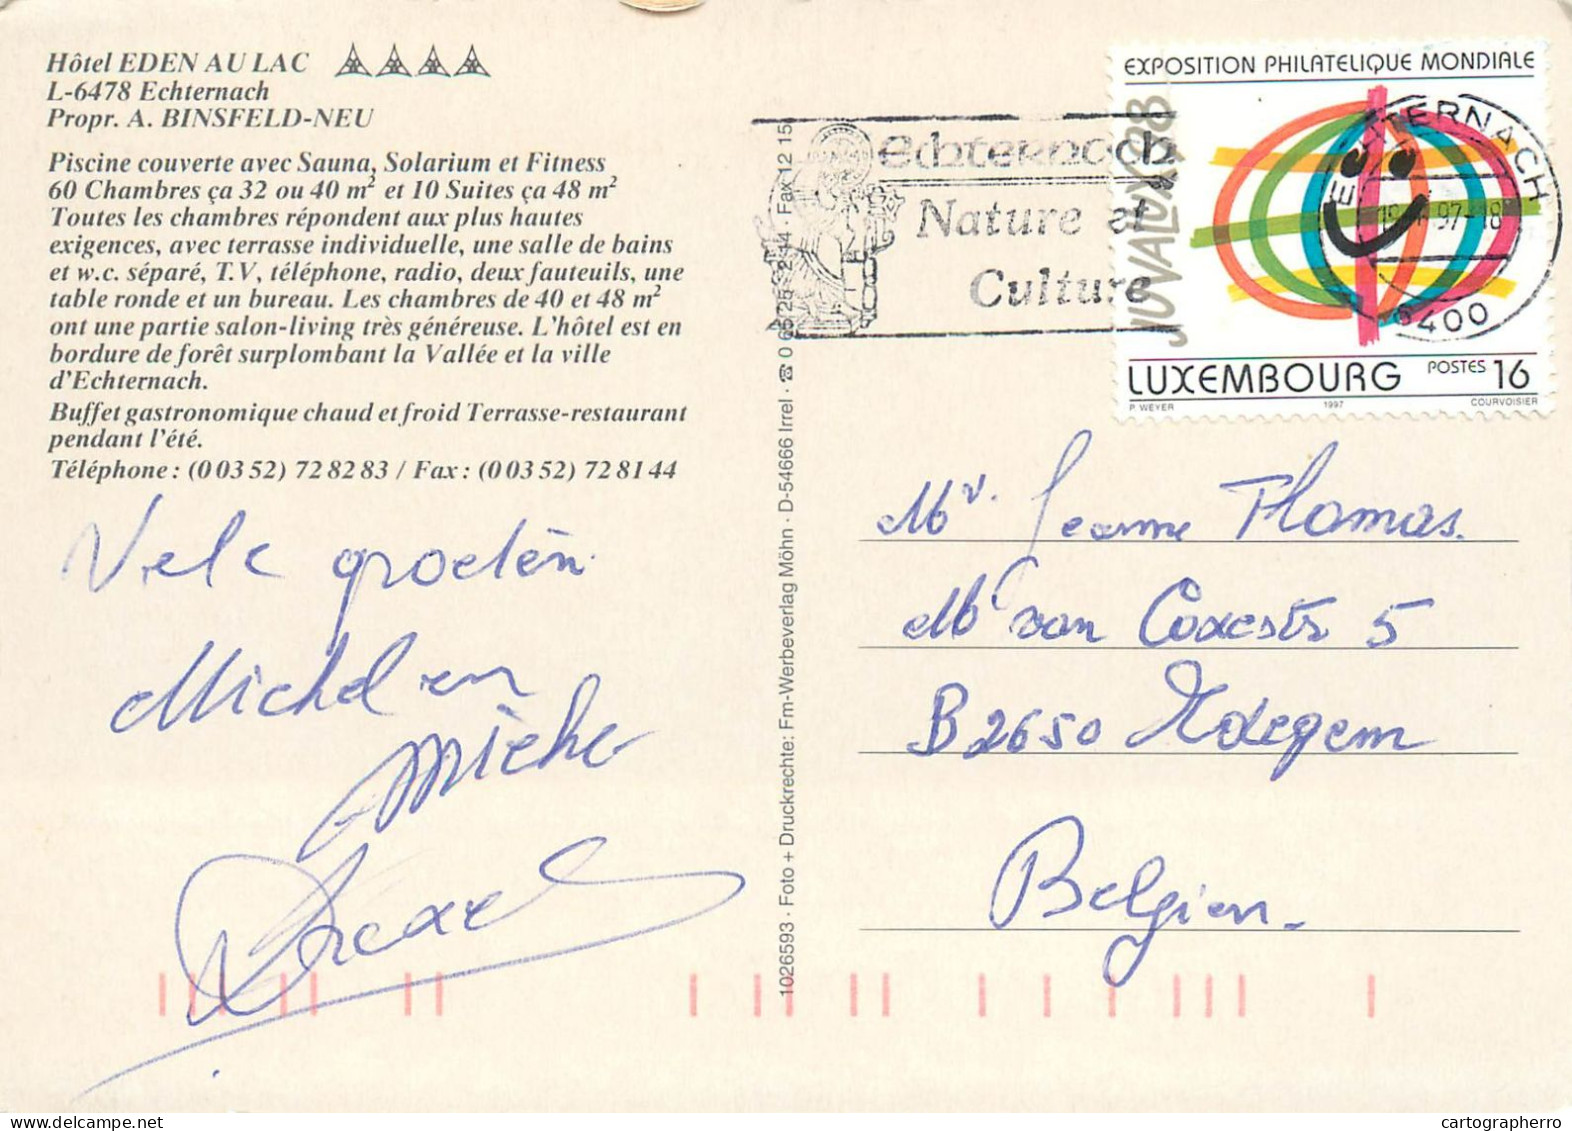 Hôtel EDEN AU LAC
L-6478 Echternach
Propr. A. BINSFELD-NEU
Piscine couverte avec Sauna, Solarium et Fitness
60 Chambres ça 32 ou 40 m² et 10 Suites ça 48 m²
Toutes les chambres répondent aux plus hautes
exigences, avec terrasse individuelle, une salle de bains
et w.c. séparé, T.V, téléphone, radio, deux fauteuils, une
table ronde et un bureau. Les chambres de 40 et 48 m²
ont une partie salon-living très généreuse. L'hôtel est en
bordure de forêt surplombant la Vallée et la ville
d'Echternach.
Buffet gastronomique chaud et froid Terrasse-restaurant
pendant l'été.
Téléphone : (0 03 52) 72 82 83 / Fax : (0 03 52) 72 81 44
Vele groeten
Michel en
1026593 · Foto + Druckrechte: Fm-Werbeverlag Möhn · D-54666 Irrel · ☎ 0 65 25-2 14 · Fax 12 15
echternach
Nature et
Culture
EXPOSITION PHILATELIQUE MONDIALE
JUVALUX98
ECHTERNACH
97-18
6400
LUXEMBOURG POSTES 16
P. WEYER 1997 COURVOISIER
Mr. Jeanne Thomas.
Mr van Coxestr 5
B 2650 Edegem
Belgien.
cartographerro